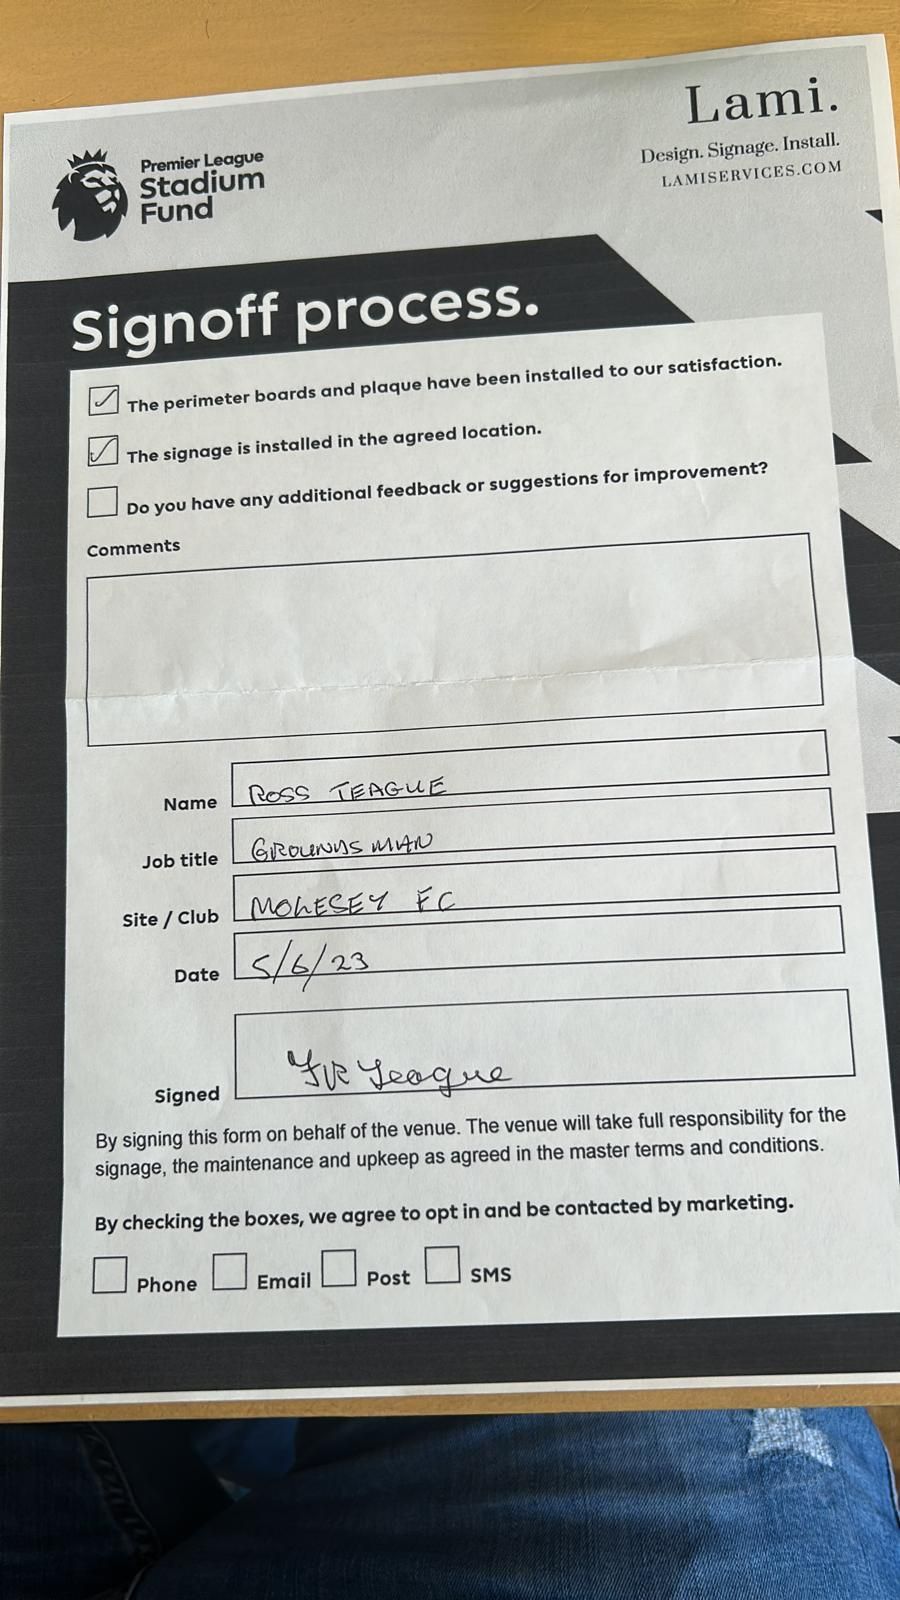 Premier League
Stadium
Fund
Lami.
Design. Signage. Install.
LAMISERVICES.COM
Signoff process.
The perimeter boards and plaque have been installed to our satisfaction.
The signage is installed in the agreed location.
Do you have any additional feedback or suggestions for improvement?
Comments
Name ROSS TEAGUE
Job title GROUNDSMAN
Site / Club MOLESEY FC
Date 5/6/23
Signed FR Teague
By signing this form on behalf of the venue. The venue will take full responsibility for the
signage, the maintenance and upkeep as agreed in the master terms and conditions.
By checking the boxes, we agree to opt in and be contacted by marketing.
Phone Email Post SMS